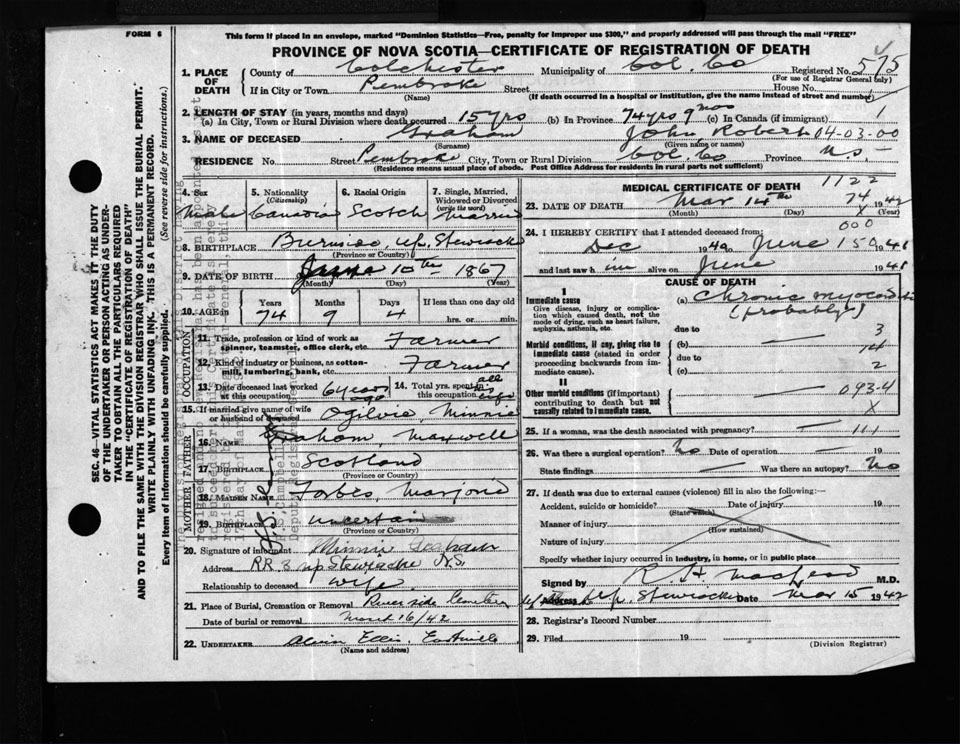 FORM 6
This form if placed in an envelope, marked "Dominion Statistics—Free, penalty for improper use $300," and properly addressed will pass through the mail "FREE"
PROVINCE OF NOVA SCOTIA—CERTIFICATE OF REGISTRATION OF DEATH
1. PLACE OF DEATH
County of Colchester Municipality of Col. Co Registered No. 575
(For use of Registrar General only)
If in City or Town Pembroke Street House No.
(Name) (If death occurred in a hospital or institution, give the name instead of street and number)
2. LENGTH OF STAY (in years, months and days)
(a) In City, Town or Rural Division where death occurred 15 yrs (b) In Province 74 yrs 9 mos (c) In Canada (if immigrant)
3. NAME OF DECEASED Graham John Robert 04-03-00
(Surname) (Given name or names)
RESIDENCE No. Street Pembroke City, Town or Rural Division Col. Co Province N.S.
(Residence means usual place of abode. Post Office Address for residents in rural parts not sufficient)
4. Sex 5. Nationality (Citizenship) 6. Racial Origin 7. Single, Married, Widowed or Divorced (write the word)
Male Canadian Scotch Married
8. BIRTHPLACE Up. Stewiacke
(Province or County)
9. DATE OF BIRTH 10th 1867
(Month) (Day) (Year)
10. AGE in Years Months Days If less than one day old
74 9 4 hrs. or min.
OCCUPATION
11. Trade, profession or kind of work as spinner, teamster, office clerk, etc. Farmer
12. Kind of industry or business, as cotton-mill, lumbering, bank, etc. Farmer
13. Date deceased last worked at this occupation 6 years ago 14. Total yrs. spent in this occupation all his life
15. If married give name of wife or husband of deceased Ogilvie Minnie
FATHER
16. NAME Graham, Maxwell
17. BIRTHPLACE Scotland
(Province or County)
MOTHER
18. MAIDEN NAME Forbes, Marjorie
19. BIRTHPLACE uncertain
(Province or Country)
20. Signature of informant Minnie Graham
Address RR 3 Up Stewiacke N.S.
Relationship to deceased wife
21. Place of Burial, Cremation or Removal Riverside Cemetery
Date of burial or removal March 16/42
22. UNDERTAKER Ellis, Eastville
(Name and Address)
MEDICAL CERTIFICATE OF DEATH 1122
23. DATE OF DEATH Mar 14th 74 1942
(Month) (Day) X (Year)
24. I HEREBY CERTIFY that I attended deceased from: 000
Dec 1940 to June 15 1941
and last saw him alive on June 1941
CAUSE OF DEATH
I
Immediate cause
Give disease, injury or complication which caused death, not the mode of dying, such as heart failure, asphyxia, asthenia, etc.
(a) Chronic
(probably)
due to 3
Morbid conditions, if any, giving rise to immediate cause (stated in order proceeding backwards from immediate cause).
(b) 14
due to
(c) 2
II
Other morbid conditions (if important) contributing to death but not causally related to immediate cause. 093-4
X
25. If a woman, was the death associated with pregnancy? 111
26. Was there a surgical operation? No Date of operation 19
State findings Was there an autopsy? No
27. If death was due to external causes (violence) fill in also the following:—
Accident, suicide or homicide? Date of injury 19
(State which)
Manner of injury
(How sustained)
Nature of injury
Specify whether injury occurred in industry, in home, or in public place
Signed by R H MacLeod M.D.
Address Up. Stewiacke Date Mar 15 1942
28. Registrar's Record Number
29. Filed 19
(Division Registrar)
SEC. 46—VITAL STATISTICS ACT MAKES IT THE DUTY
OF THE UNDERTAKER OR PERSON ACTING AS UNDER-
TAKER TO OBTAIN ALL THE PARTICULARS REQUIRED
IN THE "CERTIFICATE OF REGISTRATION OF DEATH"
AND TO FILE THE SAME WITH THE DIVISION REGISTRAR WHO SHALL ISSUE THE BURIAL PERMIT.
WRITE PLAINLY WITH UNFADING INK. THIS IS A PERMANENT RECORD.
Every item of information should be carefully supplied. (See reverse side for instructions.)